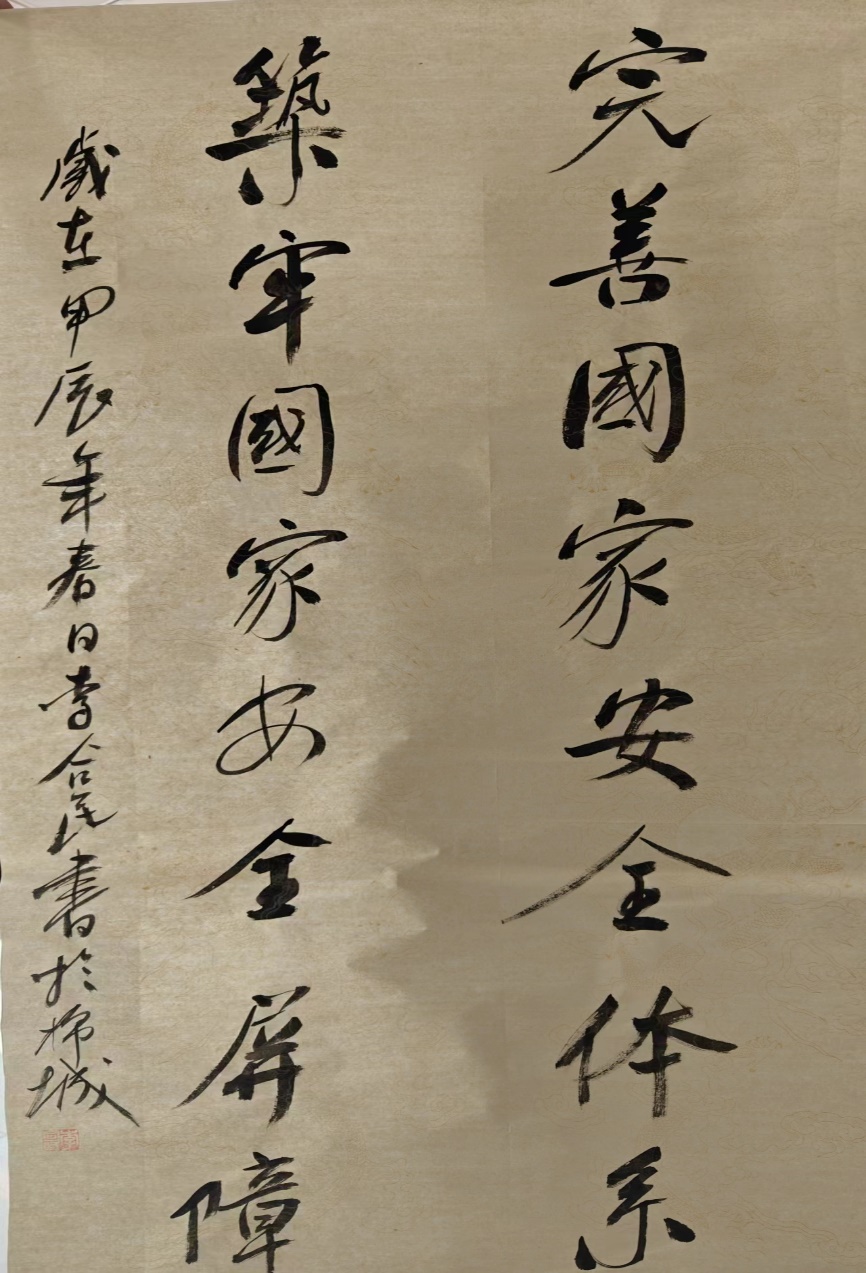 完善國家安全体系
築牢國家安全屏障
歲在甲辰年春日李合民書於棉城